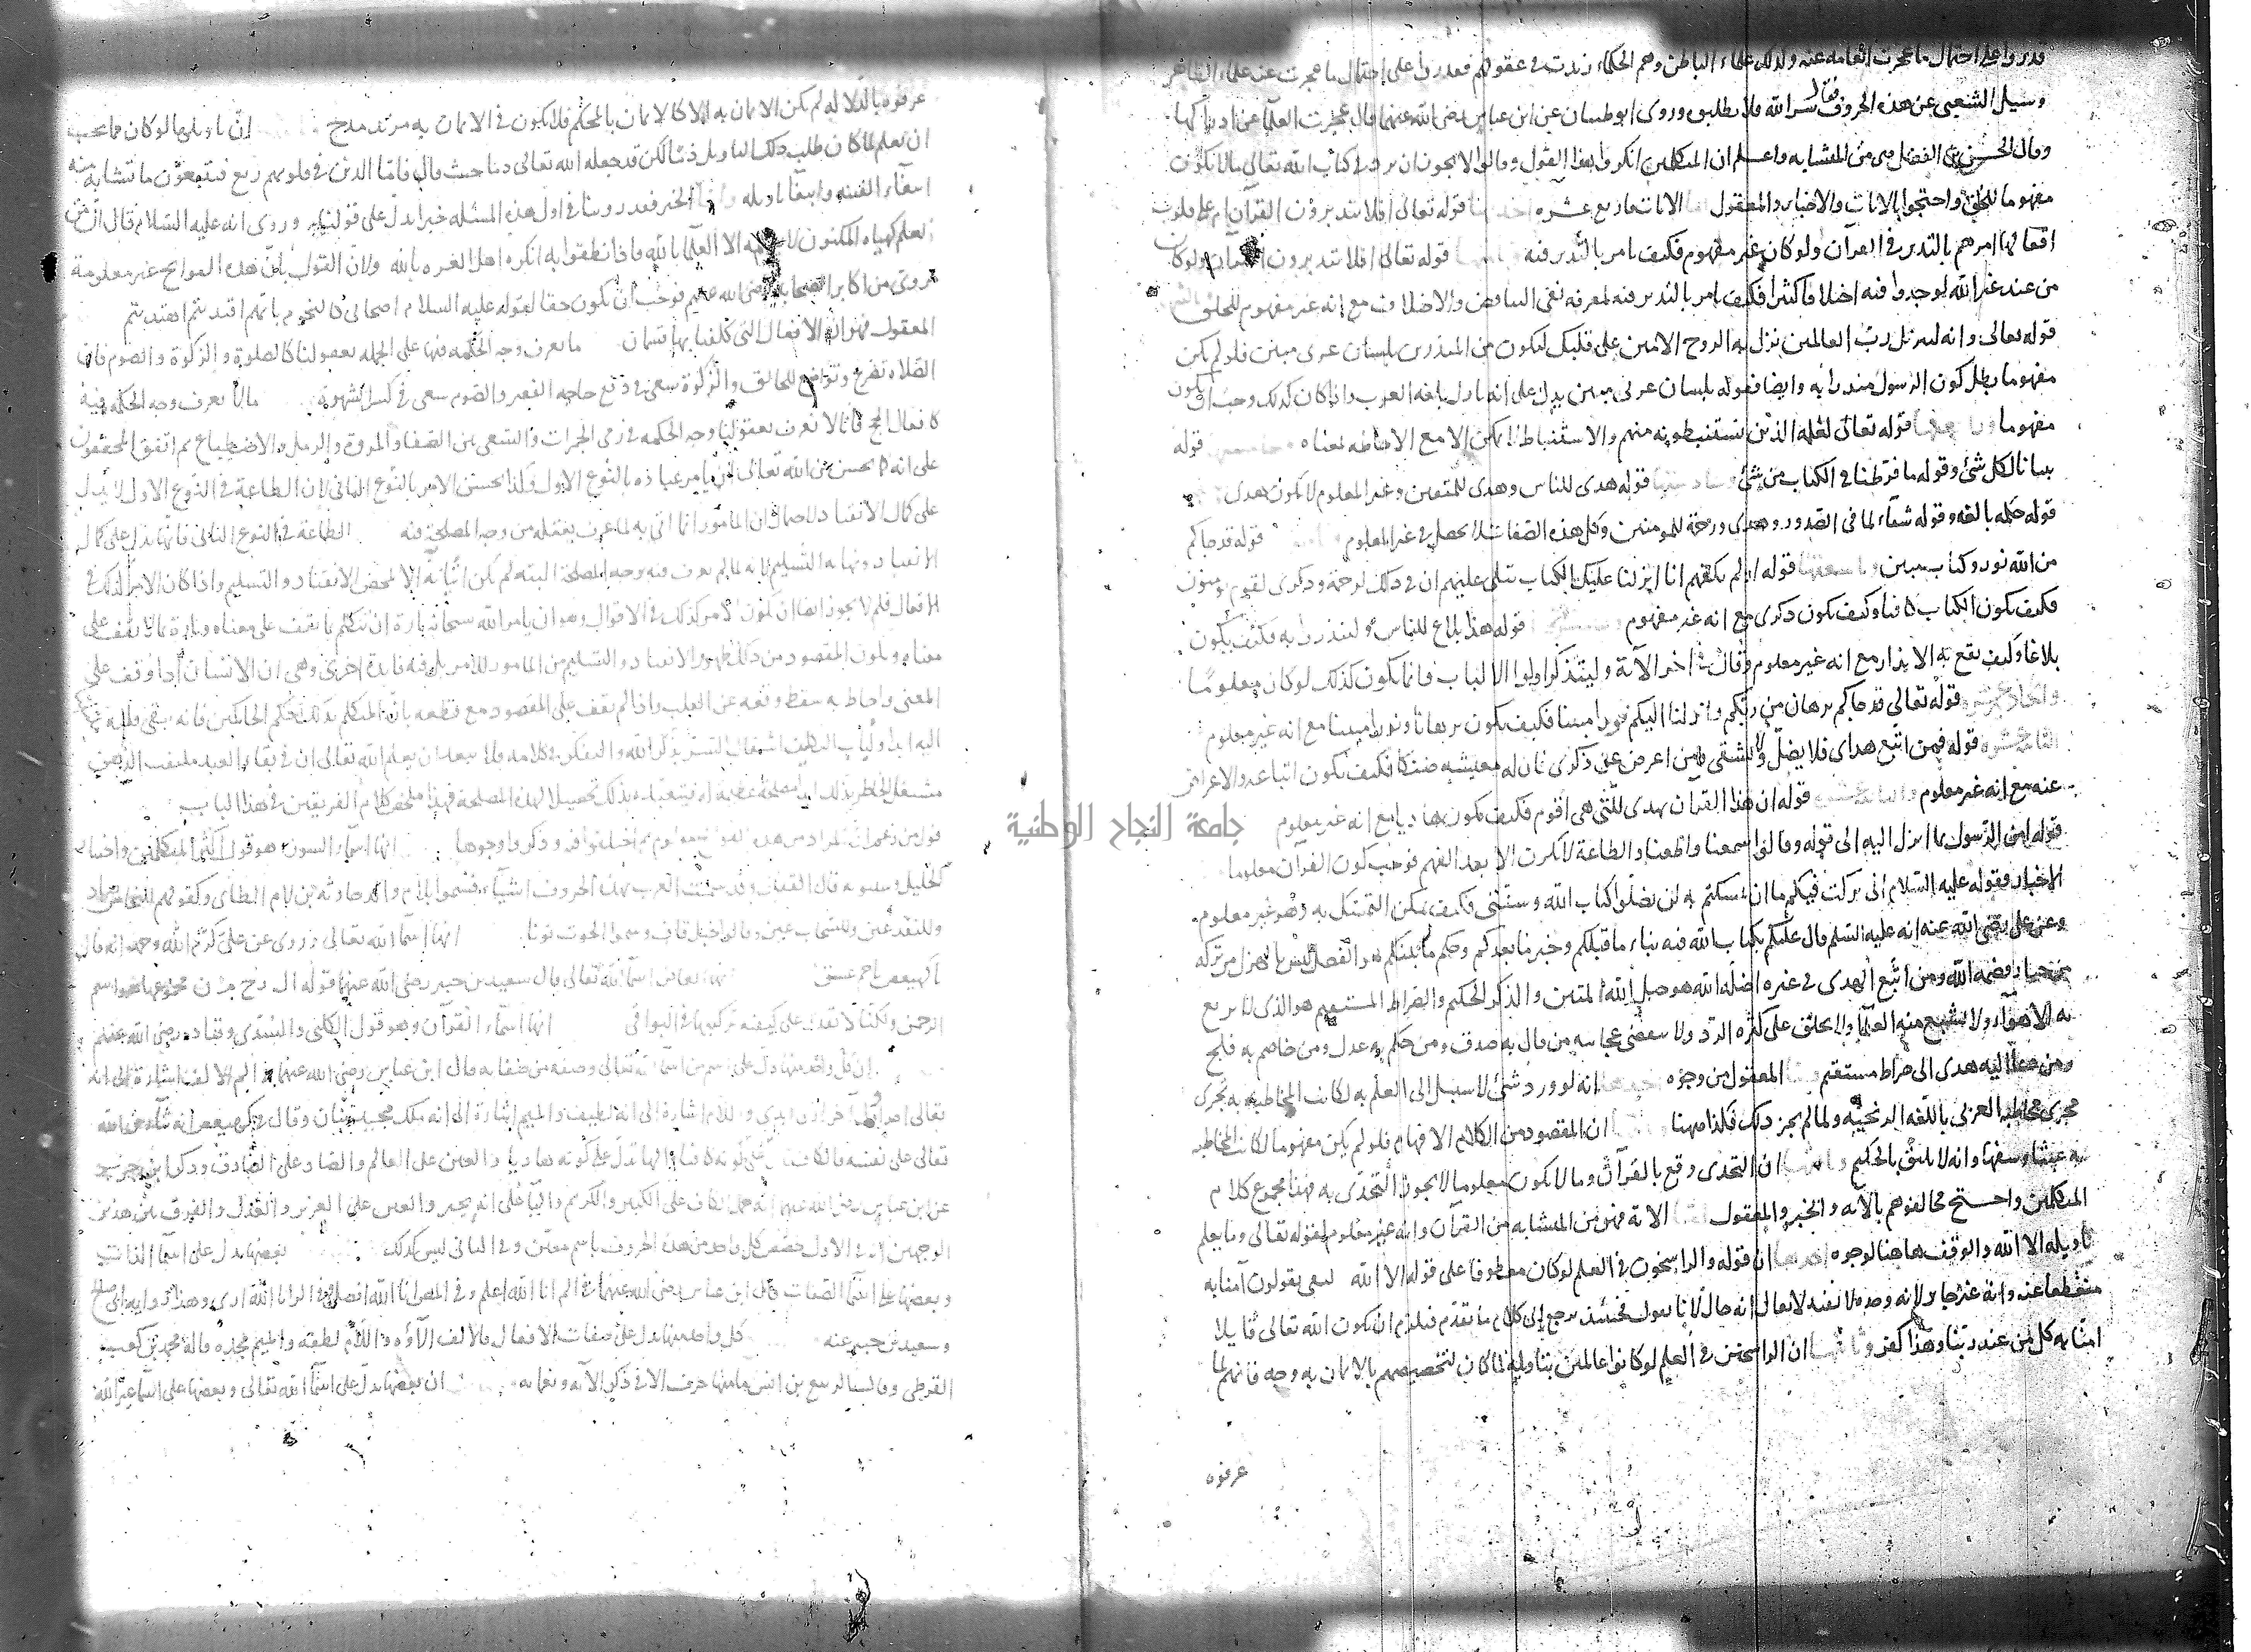 قدروا على احتمال ما عجزت العامة عنه وكذلك علماء الباطن وهم الحكماء زيدت في عقولهم فقدروا على احتمال ما عجزت عنه علماء الظاهر
وسيل الشعبي عن هذه الحروف فقال سر الله فلا تطلبوه وروى ابو ظبيان عن ابن عباس رضى الله عنهما قال عجزت العلما عن ادراكها
وقال الحسين بن الفضل هى من المتشابه واعلم ان المتكلمين انكروا هذا القول وقالوا لا يجوز ان يرد في كتاب الله تعالى ما لا يكون
مفهوما للخلق واحتجوا بالايات والاخبار والمعقول اما الايات فاربع عشره احدها قوله تعالى افلا يتدبرون القرآن ام على قلوب
اقفالها امرهم بالتدبر في القرآن ولو كان غير مفهوم فكيف يامر بالتدبر فيه قوله تعالى افلا يتدبرون القرآن ولو كان
من عند غير الله لوجدوا فيه اختلافا كثيرا فكيف يامر بالتدبر فيه لمعرفه نفى التناقض والاختلاف مع انه غير مفهوم للخلق
قوله تعالى وانه لتنزيل رب العالمين نزل به الروح الامين على قلبك لتكون من المنذرين بلسان عربى مبين فلو لم يكن
مفهوما بطل كون الرسول منذرا به وايضا فقوله بلسان عربى مبين يدل على انه نازل بلغه العرب واذا كان كذلك وجب ان يكون
مفهوما ورابعها قوله تعالى لعلمه الذين يستنبطونه منهم والاستنباط لا يمكن الا مع الاحاطه بمعناه وخامسها قوله
بيانا لكل شئ وقوله ما فرطنا في الكتاب من شئ وسادسها قوله هدى للناس وهدى للمتقين وغير المعلوم لا يكون هدى
قوله حكمه بالغه وقوله شفآء لما في الصدور وهدى ورحمة للمومنين وكل هذه الصفات لا يحصل في غير المعلوم قوله قد جاكم
من الله نور وكتاب مبين وتاسعها قوله اولم يكفهم انا انزلنا عليك الكتاب يتلى عليهم ان في ذلك لرحمة وذكرى لقوم يومنون
فكيف يكون الكتاب كافيا وكيف يكون ذكرى مع انه غير مفهوم قوله هذا بلاغ للناس ولينذروا به فكيف يكون
بلاغا وكيف يقع به الانذار مع انه غير معلوم وقال في اخر الآية وليتذكر اولوا الالباب فانما يكون كذلك لو كان معلوما
قوله تعالى قد جاكم برهان من ربكم وانزلنا اليكم نورا مبينا فكيف يكون برهانا ونورا مبينا مع انه غير معلوم
قوله فمن اتبع هداى فلا يضل ولا يشقى ومن اعرض عن ذكرى فان له معيشه ضنكا فكيف يكون اتباعه والاعراض
عنه مع انه غير معلوم قوله ان هذا القرآن يهدى للتى هى اقوم فكيف يكون هاديا مع انه غير معلوم
جامعة النجاح الوطنية
قوله امن الرسول بما انزل اليه الى قوله وقالوا سمعنا واطعنا والطاعة لا يكون الا بعد الفهم فوجب كون القرآن معلوما
الاخبار فقوله عليه السلام انى تركت فيكم ما ان تمسكتم به لن تضلوا كتاب الله وسنتى فكيف يمكن التمسك به وهو غير معلوم
وعن على رضى الله عنه انه عليه السلم قال عليكم بكتاب الله فيه نباء ما قبلكم وخبر ما بعدكم وحكم ما بينكم هو الفصل ليس بالهزل من تركه
من جبار قصمه الله ومن اتبع الهدى في غيره اضله الله هو حبل الله المتين والذكر الحكيم والصراط المستقيم هو الذى لا تزيغ
به الاهوآء ولا يشبع منه العلمآ ولا يخلق على كثره الرد ولا تنقضى عجايبه من قال به صدق ومن حكم به عدل ومن خاصم به فلج
ومن دعا اليه هدى الى صراط مستقيم المعقول من وجوه احدها انه لو ورد شئ لا سبيل الى العلم به لكانت المخاطبه به تجرى
مجرى مخاطبه العربى باللغه الزنجيه ولما لم يجز ذلك فكذا ههنا ان المقصود من الكلام الافهام فلو لم يكن مفهوما لكانت المخاطبه
به عبثا وسفها وانه لا يليق بالحكيم ان التحدى وقع بالقرآن وما لا يكون معلوما لا يجوز التحدى به فهذا مجموع كلام
المتكلمين واحتج مخالفوهم بالآيه والخبر والمعقول الاية فهو من المتشابه من القرآن وانه غير معلوم لقوله تعالى وما يعلم
تاويله الا الله والوقف هاهنا لوجوه احدها ان قوله والراسخون في العلم لو كان معطوفا على قوله الا الله لبقى يقولون آمنا به
منقطعا عنه وانه غير جايز لانه وحده لا يفيد لا يقال انه حال لانا نقول فحينئذ يرجع الى كلام ما تقدم فيلزم ان يكون الله تعالى قايلا
امنا به كل من عند ربنا وهذا كفر وثانيها ان الراسخين في العلم لو كانوا عالمين بتاويله لما كان لتخصيصهم بالايمان به وجه فانهم لما
عرفوه
عرفوه بالدلاله لم يكن الايمان به الا كالايمان بالمحكم فلا يكون في الايمان به مزيد مدح ان تاويلها لو كان مما يجب
ان يعلم لما كان طلب ذلك التاويل ذما لكن قد جعله الله تعالى ذما حيث قال فاما الذين في قلوبهم زيغ فيتبعون ما تشابه منه
ابتغآء الفتنه وابتغآ تاويله واما الخبر فقد روينا في اول هذه المسئله خبرا يدل على قولنا وروى انه عليه السلام قال ان من
العلم كهيئه المكنون لا يعلمه الا العلمآ بالله فاذا نطقوا به انكره اهل الغره بالله ولان القول بان هذه الفواتح غير معلومة
مروى من اكابر الصحابه رضى الله عنهم فوجب ان يكون حقا لقوله عليه السلام اصحابى كالنجوم بايهم اقتديتم اهتديتم
المعقول فهو ان الافعال التى كلفنا بها قسمان ما نعرف وجه الحكمه فيها على الجمله بعقولنا كالصلوة والزكوة والصوم فان
الصلاه تضرع وتواضع للخالق والزكوة سعى في دفع حاجه الفقير والصوم سعى في كسر الشهوة ما لا نعرف وجه الحكمه فيه
كافعال الحج فانا لا نعرف بعقولنا وجه الحكمه في رمى الجمرات والسعى بين الصفا والمروة والرمل والاضطباع ثم اتفق المحققون
على انه كما يحسن من الله تعالى ان يامر عباده بالنوع الاول فكذا يحسن الامر بالنوع الثانى لان الطاعة في النوع الاول لا تدل
على كمال الانقياد لاحتمال ان المامور انما اتى به لما عرف بعقله من وجه المصلحة فيه الطاعة في النوع الثانى فانها تدل على كمال
الانقياد ونهايه التسليم لانه لما لم يعرف فيه وجه المصلحة البته لم يكن اتيانه الا لمحض الانقياد والتسليم واذا كان الامر كذلك في
الافعال فلم لا يجوز ايضا ان يكون الامر كذلك في الاقوال وهو ان يامر الله سبحانه تارة ان نتكلم بما نقف على معناه وتارة بما لا نقف على
معناه ويكون المقصود من ذلك ظهور الانقياد والتسليم من المامور للآمر بل فيه فايدة اخرى وهى ان الانسان اذا وقف على
المعنى واحاط به سقط وقعه عن القلب واذا لم يقف على المقصود مع قطعه بان المتكلم بذلك احكم الحاكمين فانه يبقى قلبه
اليه ابدا ولباب التكليف اشتغال السر بذكر الله والتفكر في كلامه فلا يبعد ان يعلم الله تعالى ان في بقاء العبد ملتفت الذهن
مشتغل الخاطر بذلك ابدا مصلحة عظيمة له فيتعبده بذلك تحصيلا لهذه المصلحة فهذا ملخص كلام الفريقين في هذا الباب
قول من زعم ان المراد من هذه الفواتح معلوم ثم اختلفوا فيه وذكروا وجوها انها اسمآء السور وهو قول اكثر المتكلمين واختيار
الخليل وسيبويه قال القفال وقد سمت العرب بهذه الحروف اشيآء فسموا بلام والد حارثه بن لام الطاى وكقولهم للنحاس صاد
وللنقد عين وللسحاب عين وقالوا جبل قاف وسموا الحوت نونا انها اسمآ الله تعالى روى عن على كرم الله وجهه انه قال
يا كهيعص يا حم عسق انها ابعاض اسمآء الله تعالى قال سعيد بن جبير رضى الله عنهما قوله الر حم ن مجموعها هو اسم
الرحمن ولكنا لا نقدر على كيفيه تركيبها في البواقى انها اسمآء القرآن وهو قول الكلبى والسدى وقتاده رضى الله عنهم
ان كل واحد منها دال على اسم من اسمآء الله تعالى وصفه من صفاته قال ابن عباس رضى الله عنهما في الم الالف اشارة الى انه
تعالى احد اول آخر ازلى ابدى واللام اشارة الى انه لطيف والميم اشارة الى انه ملك مجيد منان وقال في كهيعص انه ثناء منه
تعالى على نفسه فالكاف يدل على كونه كافيا والها تدل على كونه هاديا والعين على العالم والصاد على الصادق وذكر ابن جرير
عن ابن عباس رضى الله عنهما انه حمل الكاف على الكبير والكريم واليآ على انه يجير والعين على العزيز والعدل والفرق بين هذين
الوجهين انه في الاول خصص كل واحد من هذه الحروف باسم معين وفي الثانى ليس كذلك بعضها يدل على اسمآ الذات
وبعضها على اسمآ الصفات قال ابن عباس رضى الله عنهما في الم انا الله اعلم وفي المص انا الله افصل وفي الر انا الله ارى وهذا روايه ابى صالح
وسعيد بن جبير عنه كل واحد منها يدل على صفات الافعال فالالف الآؤه واللام لطفه والميم مجده قاله محمد بن كعب
القرظى وقال الربيع بن انس ما منها حرف الا في ذكر الآئه ونعمائه ان بعضها يدل على اسمآ الله تعالى وبعضها على اسمآ غير الله